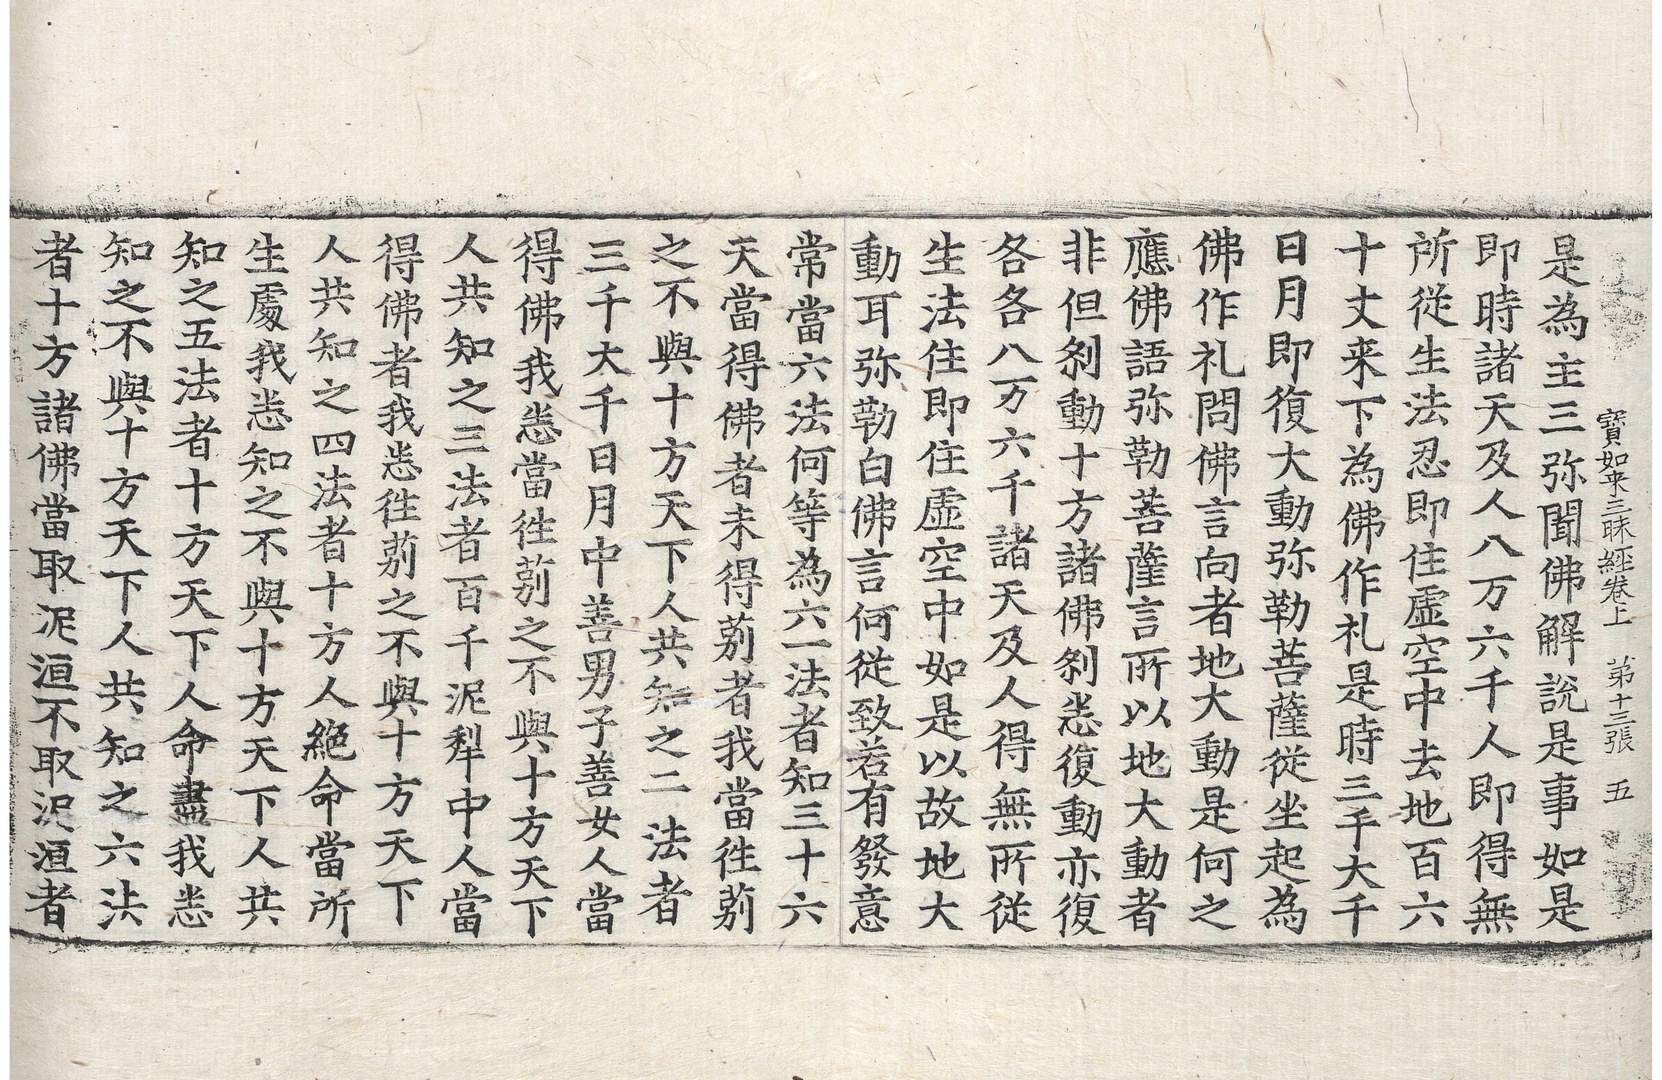 寶如来三昧經卷上 第十三張 五
是為主三弥聞佛解說是事如是
即時諸天及人八万六千人即得無
所從生法忍即住虛空中去地百六
十丈来下為佛作礼是時三千大千
日月即復大動弥勒菩薩從坐起為
佛作礼問佛言向者地大動是何之
應佛語弥勒菩薩言所以地大動者
非但剎動十方諸佛剎悉復動亦復
各各八万六千諸天及人得無所從
生法住即住虛空中如是以故地大
動耳弥勒白佛言何從致若有發意
常當六法何等為六一法者知三十六
天當得佛者未得莂者我當徃莂
之不與十方天下人共知之二法者
三千大千日月中善男子善女人當
得佛我悉當徃莂之不與十方天下
人共知之三法者百千泥犁中人當
得佛者我悉徃莂之不與十方天下
人共知之四法者十方人絕命當所
生處我悉知之不與十方天下人共
知之五法者十方天下人命盡我悉
知之不與十方天下人共知之六法
者十方諸佛當取泥洹不取泥洹者